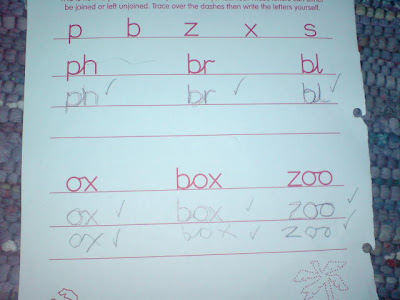 be joined or left unjoined. Trace over the dashes then write the letters yourself.
p b z x s
ph br bl
ph br bl
ox box zoo
ox box zoo
ox box zoo